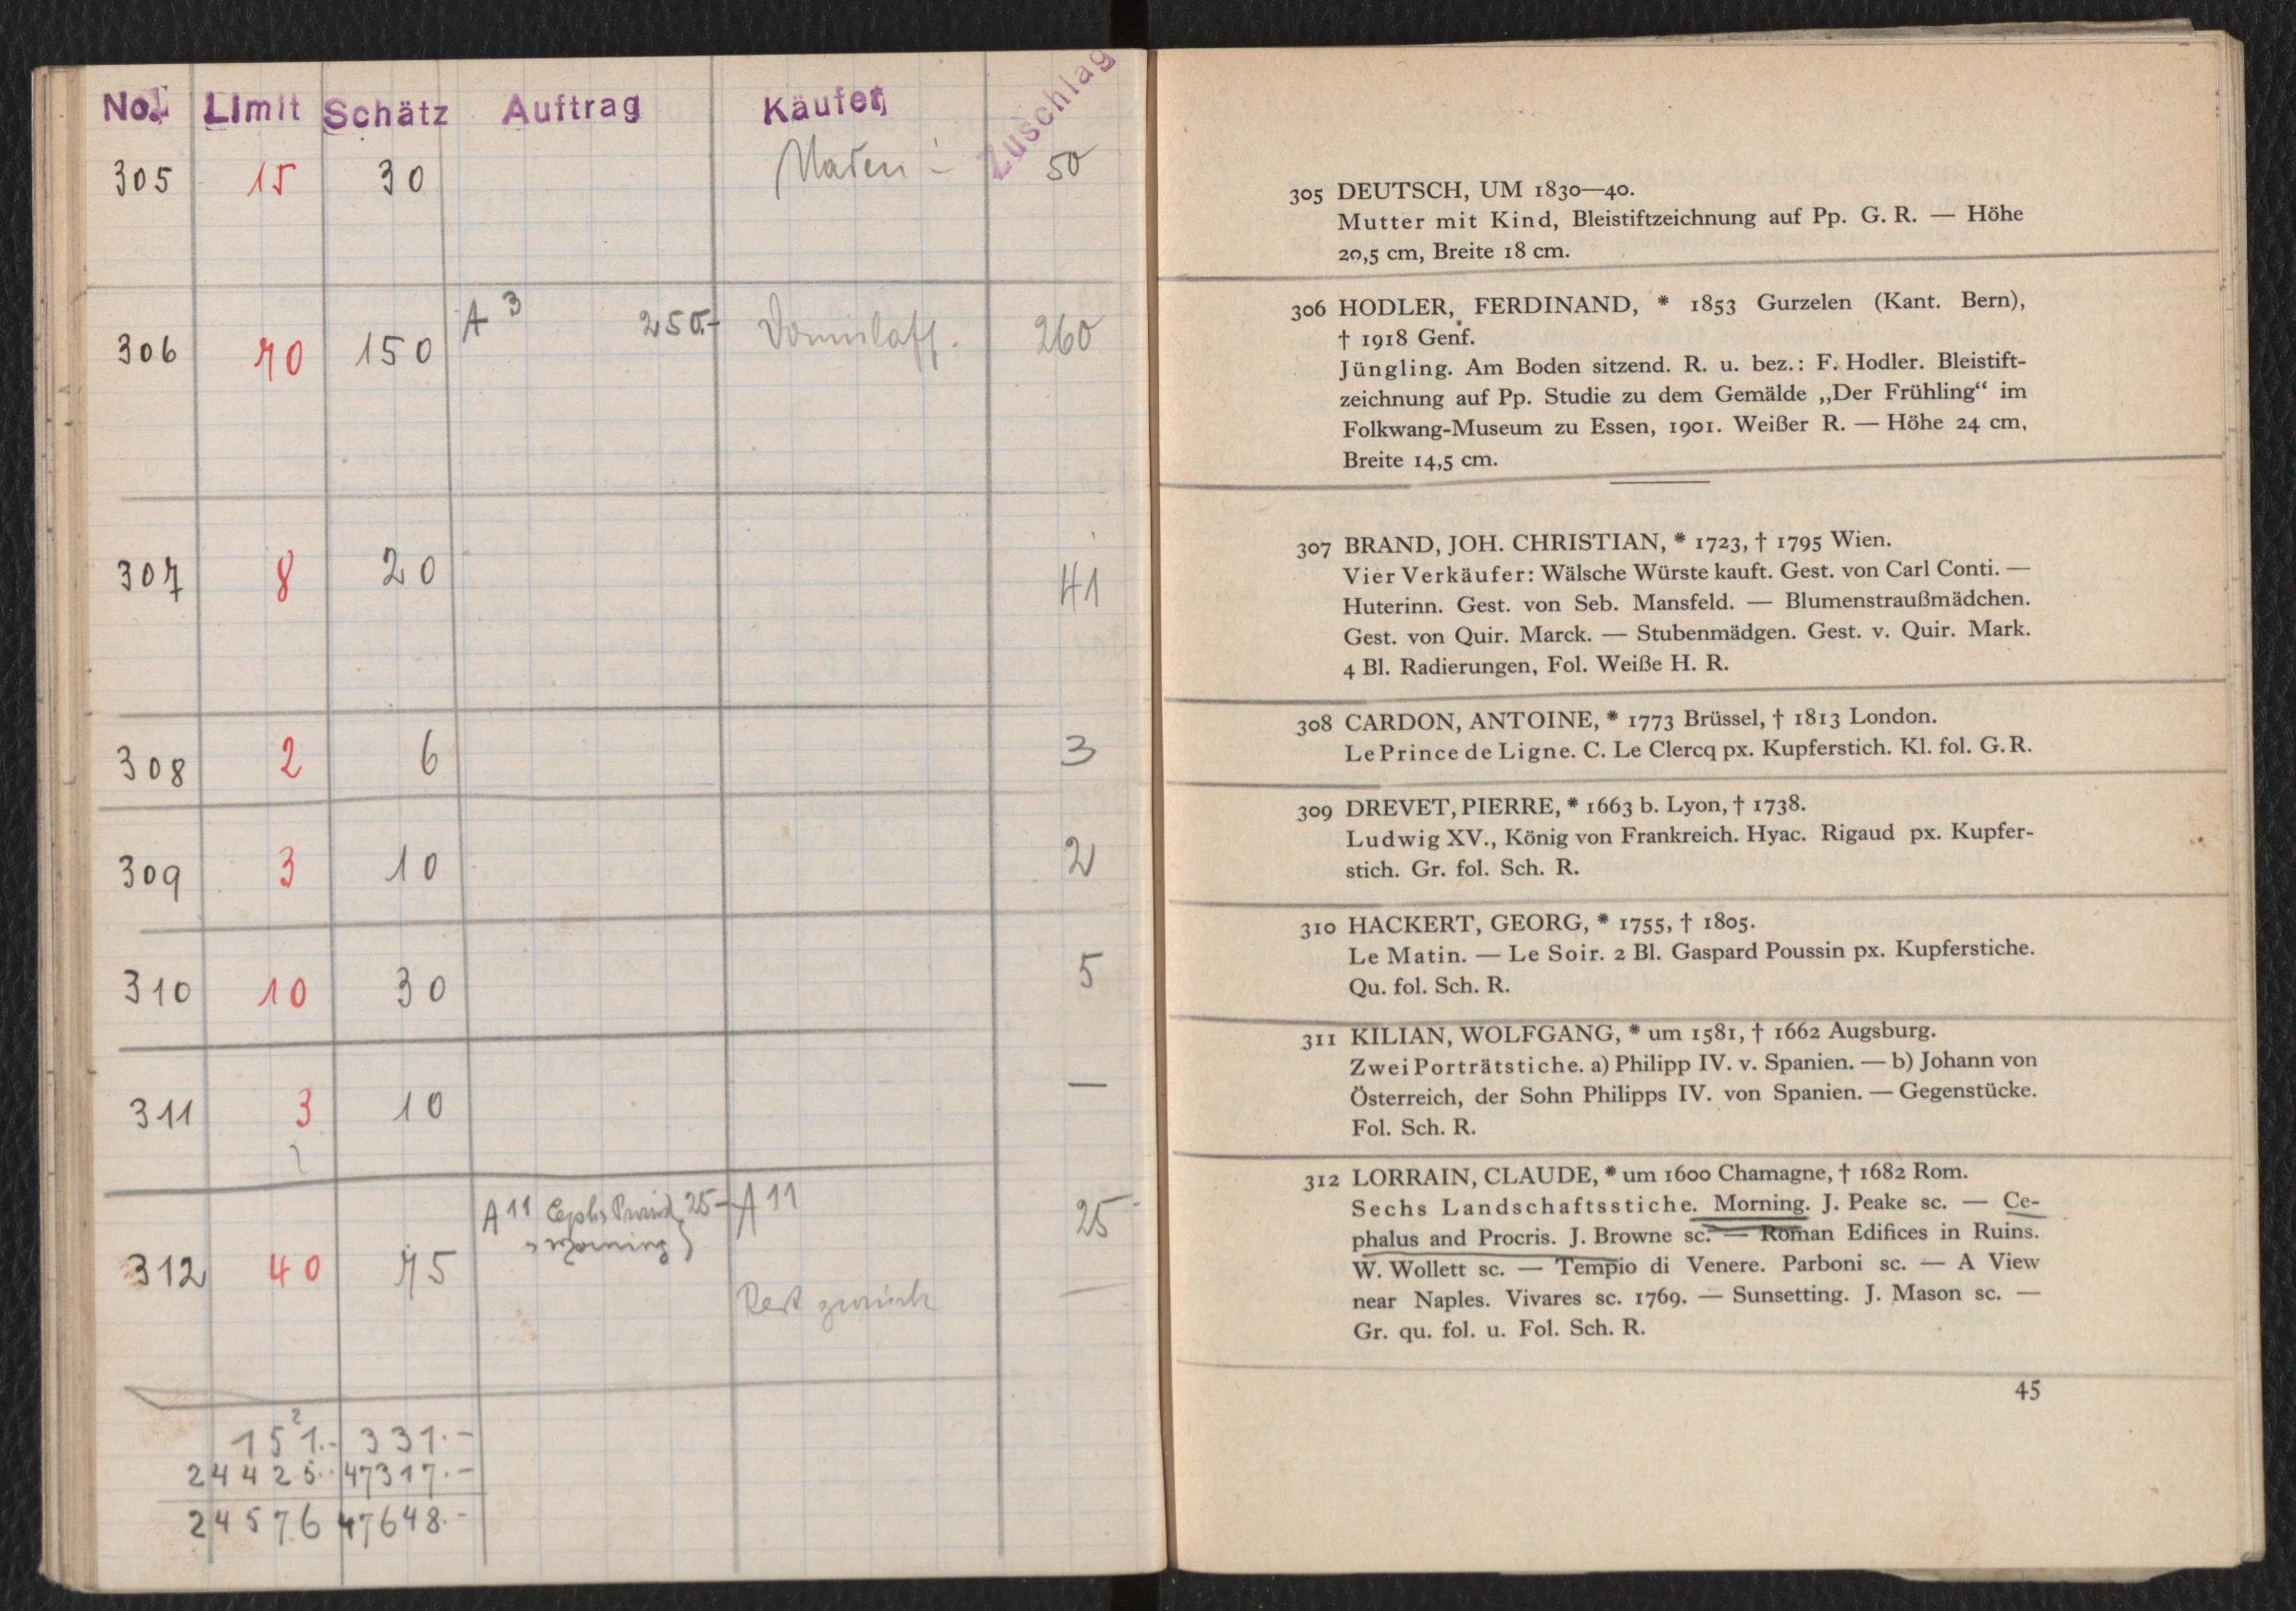 No. Limit Schätz Auftrag Käufer Zuschlag
305 15 30 50
306 70 150 A 3 250.- 260
307 8 20 41
308 2 6 3
309 3 10 2
310 10 30 5
311 3 10 —
A 11 25.- A 11 25
Morning
312 40 75
Rest zurück —
151.- 331.-
2
24425.- 47317.-
24576 47648.-
305 DEUTSCH, UM 1830—40.
Mutter mit Kind, Bleistiftzeichnung auf Pp. G. R. — Höhe
20,5 cm, Breite 18 cm.
306 HODLER, FERDINAND, * 1853 Gurzelen (Kant. Bern),
† 1918 Genf.
Jüngling. Am Boden sitzend. R. u. bez.: F. Hodler. Bleistift-
zeichnung auf Pp. Studie zu dem Gemälde „Der Frühling“ im
Folkwang-Museum zu Essen, 1901. Weißer R. — Höhe 24 cm,
Breite 14,5 cm.
307 BRAND, JOH. CHRISTIAN, * 1723, † 1795 Wien.
Vier Verkäufer: Wälsche Würste kauft. Gest. von Carl Conti. —
Huterinn. Gest. von Seb. Mansfeld. — Blumenstraußmädchen.
Gest. von Quir. Marck. — Stubenmädgen. Gest. v. Quir. Mark.
4 Bl. Radierungen, Fol. Weiße H. R.
308 CARDON, ANTOINE, * 1773 Brüssel, † 1813 London.
Le Prince de Ligne. C. Le Clercq px. Kupferstich. Kl. fol. G. R.
309 DREVET, PIERRE, * 1663 b. Lyon, † 1738.
Ludwig XV., König von Frankreich. Hyac. Rigaud px. Kupfer-
stich. Gr. fol. Sch. R.
310 HACKERT, GEORG, * 1755, † 1805.
Le Matin. — Le Soir. 2 Bl. Gaspard Poussin px. Kupferstiche.
Qu. fol. Sch. R.
311 KILIAN, WOLFGANG, * um 1581, † 1662 Augsburg.
Zwei Porträtstiche. a) Philipp IV. v. Spanien. — b) Johann von
Österreich, der Sohn Philipps IV. von Spanien. — Gegenstücke.
Fol. Sch. R.
312 LORRAIN, CLAUDE, * um 1600 Chamagne, † 1682 Rom.
Sechs Landschaftsstiche. Morning. J. Peake sc. — Ce-
phalus and Procris. J. Browne sc. — Roman Edifices in Ruins.
W. Wollett sc. — Tempio di Venere. Parboni sc. — A View
near Naples. Vivares sc. 1769. — Sunsetting. J. Mason sc. —
Gr. qu. fol. u. Fol. Sch. R.
45